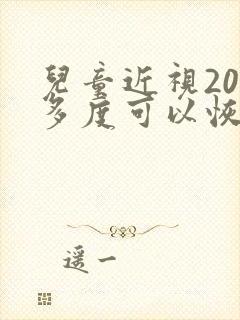 兒童近視20
多度可以恢
遥一